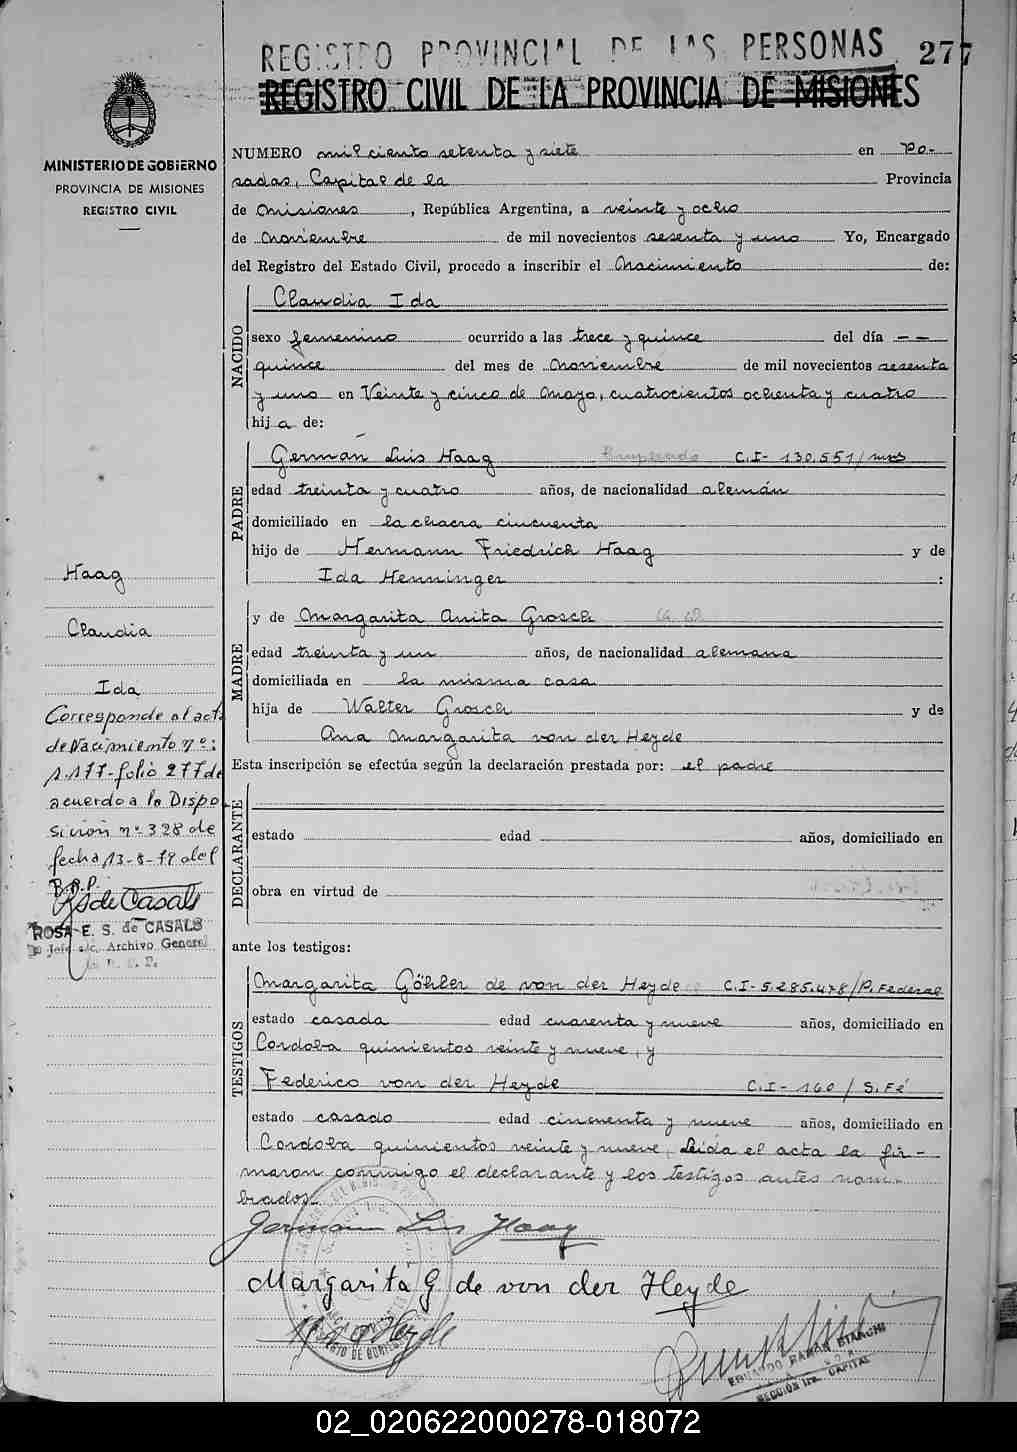 REGISTRO PROVINCIAL DE LAS PERSONAS 277
REGISTRO CIVIL DE LA PROVINCIA DE MISIONES
MINISTERIO DE GOBIERNO
PROVINCIA DE MISIONES
REGISTRO CIVIL
NUMERO mil ciento setenta y siete en Po-
sadas, Capital de la Provincia
de Misiones, República Argentina, a veinte y ocho
de Noviembre de mil novecientos sesenta y uno Yo, Encargado
del Registro del Estado Civil, procedo a inscribir el Nacimiento de:
NACIDO
Claudia Ida
sexo femenino ocurrido a las trece y quince del día --
quince del mes de Noviembre de mil novecientos sesenta
y uno en Veinte y cinco de Mayo, cuatrocientos ochenta y cuatro
hij a de:
PADRE
Germán Luis Haag C.I- 130.551/mns
edad treinta y cuatro años, de nacionalidad alemán
domiciliado en la chacra cincuenta
hijo de Hermann Friedrich Haag y de
Ida Henninger :
MADRE
y de Margarita Anita Grosch
edad treinta y un años, de nacionalidad alemana
domiciliada en la misma casa
hija de Walter Grosch y de
Ana Margarita von der Heyde
Esta inscripción se efectúa según la declaración prestada por: el padre
DECLARANTE
estado edad años, domiciliado en
obra en virtud de
ante los testigos:
TESTIGOS
Margarita Göhler de von der Heyde C.I-5.285.478/P.Federal
estado casada edad cuarenta y nueve años, domiciliado en
Cordoba quinientos veinte y nueve, y
Federico von der Heyde C.I- 160 / S.Fé
estado casado edad cincuenta y nueve años, domiciliado en
Cordoba quinientos veinte y nueve, Leida el acta la fir-
maron conmigo el declarante y los testigos antes nom-
brados.-
German Luis Haag
Margarita G. de von der Heyde
EDUARDO RAMON BIANCHI
SECCIÓN 1ra. CAPITAL
Haag
Claudia
Ida
Corresponde al acta
de Nacimiento nº:
1.177-folio 277 de
acuerdo a la Dispo
sición nº 328 de
fecha 13-8-79 del
R.P.P.
RS de Casals
ROSA E. S. de CASALS
Jefe a/c. Archivo General
02_020622000278-018072